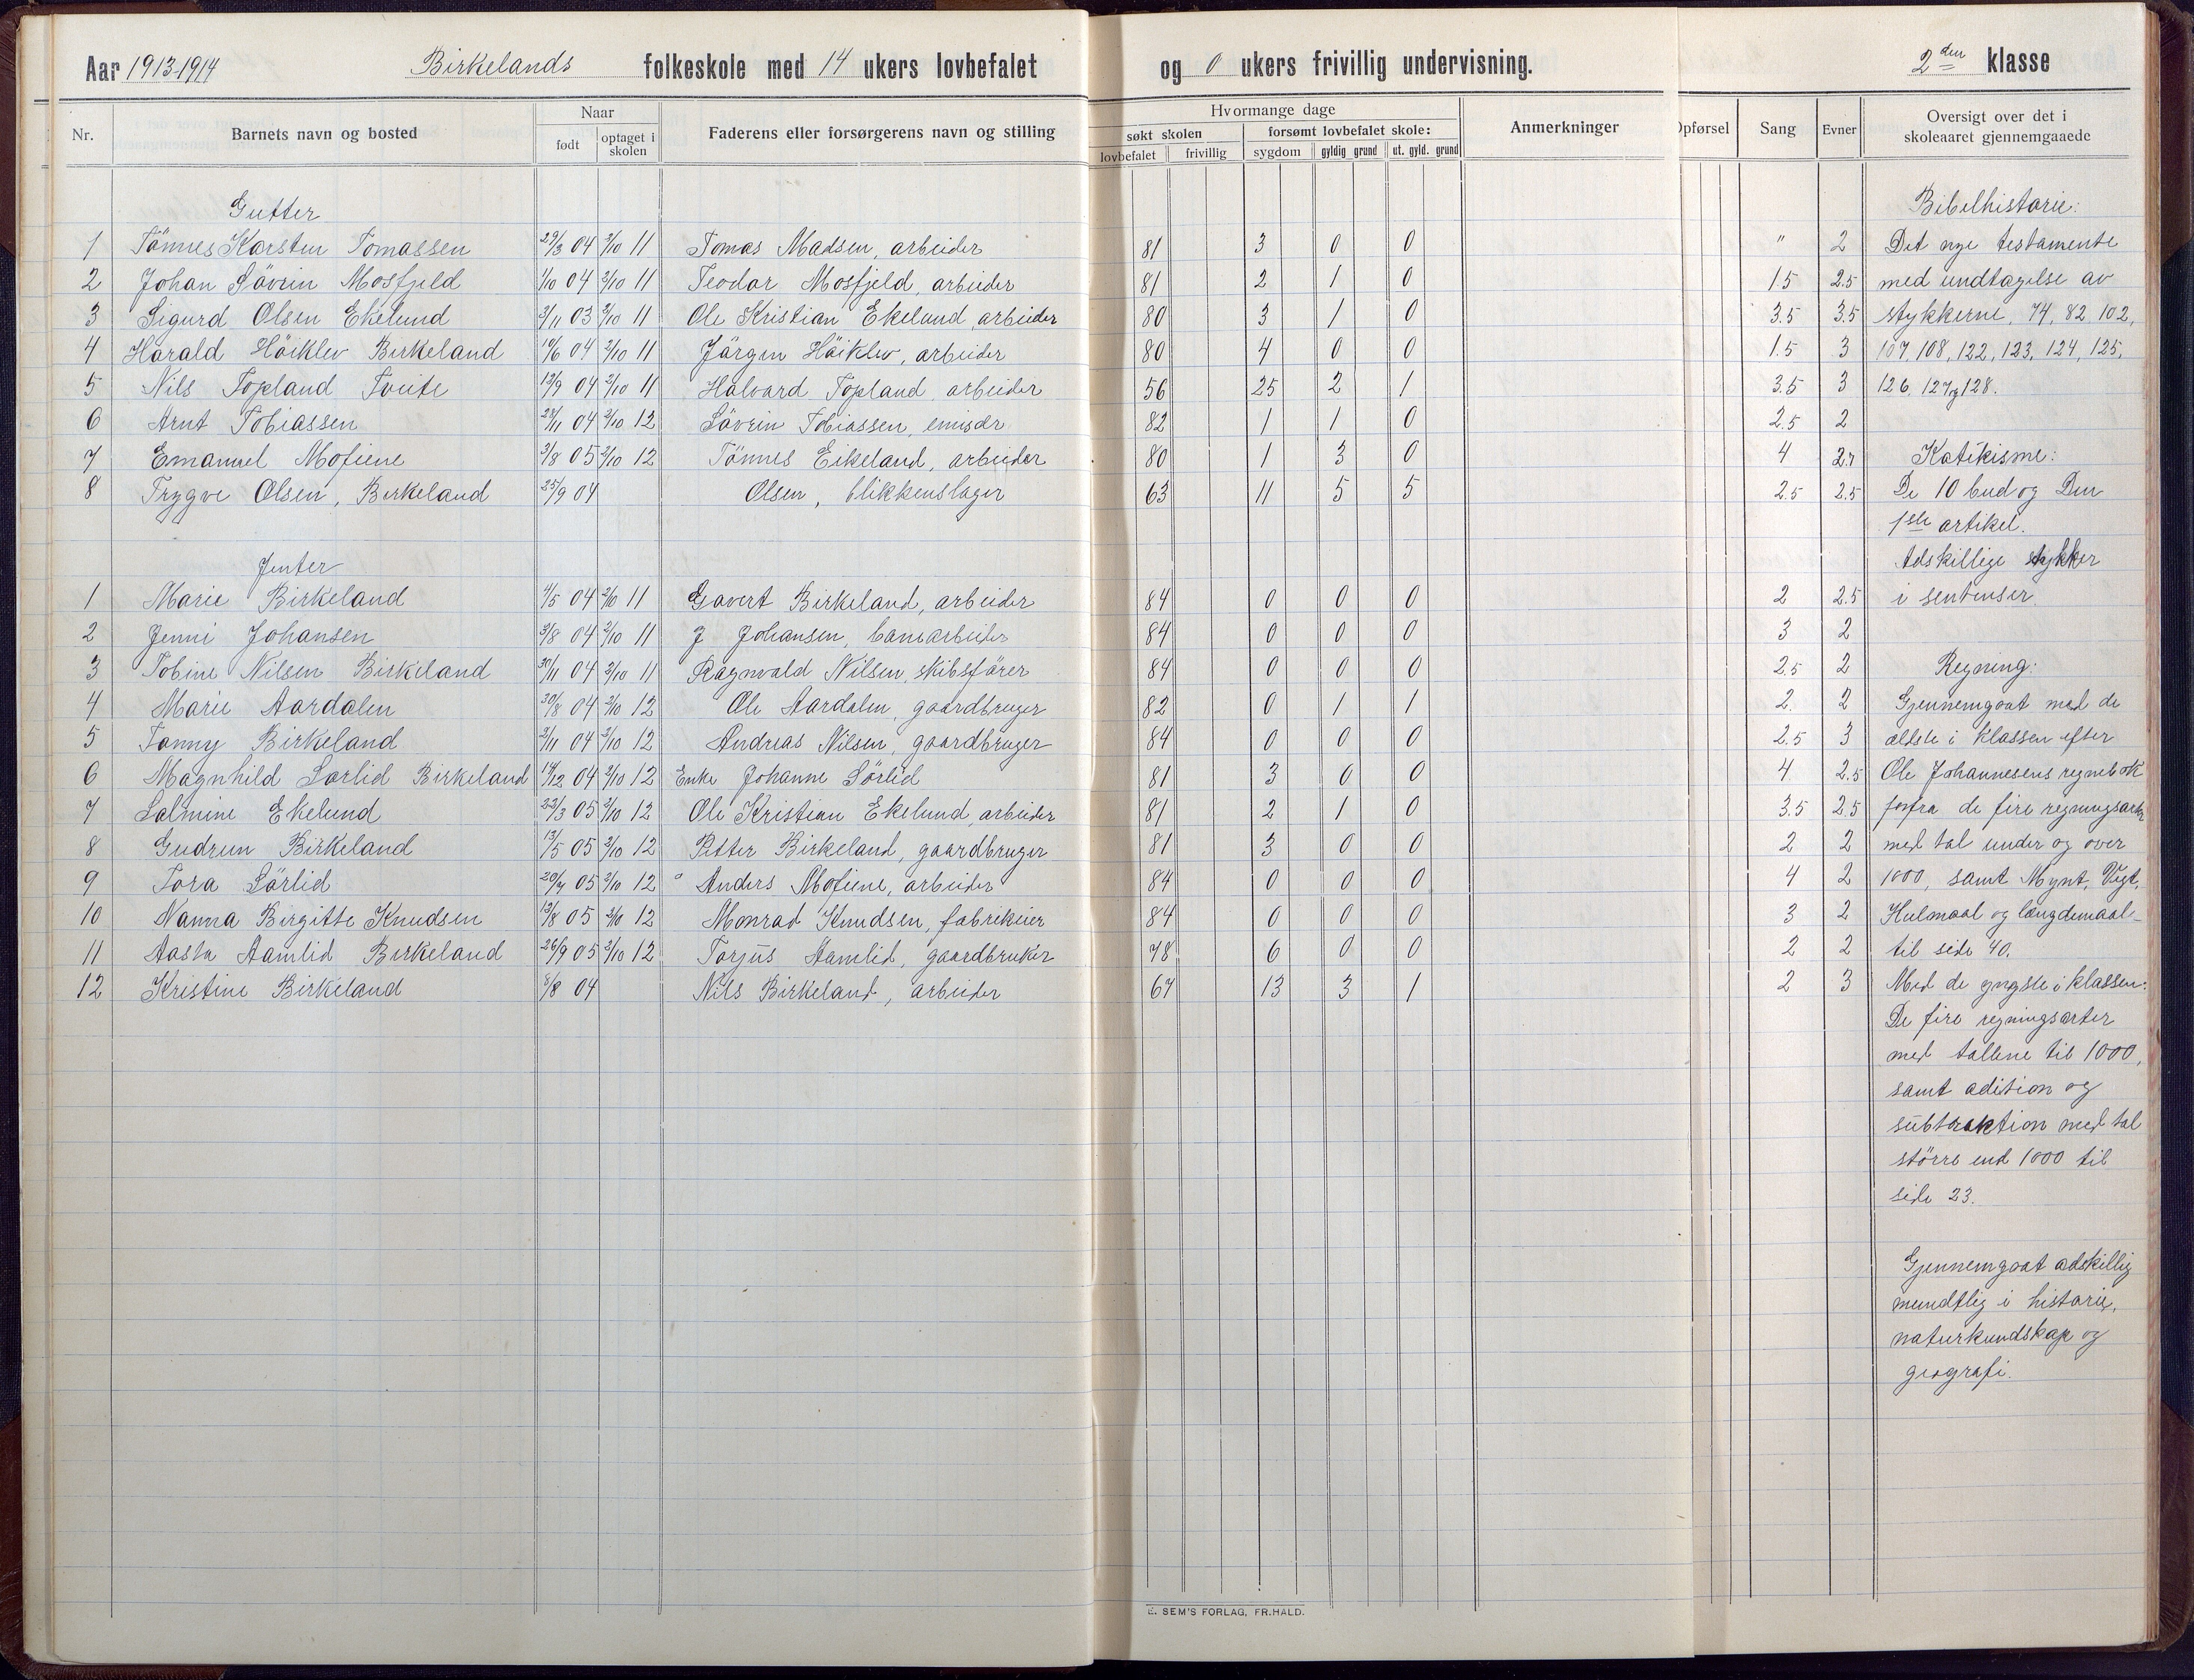 Aar 1913-1914 Birkelands folkeskole med 14 ukers lovbefalet og 0 ukers frivillig undervisning. 2den klasse
Nr. Barnets navn og bosted Naar født optaget i skolen Faderens eller forsørgerens navn og stilling
Hvormange dage
søkt skolen forsømt lovbefalet skole:
lovbefalet frivillig sygdom gyldig grund ut. gyld. grund
Anmerkninger Opførsel Sang Evner Oversigt over det i skoleaaret gjennemgaaede
Gutter
1 Tönnes Karsten Tomassen 29/3 04 2/10 11 Tomas Madsen, arbeider 81 3 0 0 " 2
2 Johan Sövrin Mosfjeld 1/10 04 2/10 11 Teodor Mosfjeld, arbeider 81 2 1 0 1.5 2.5
3 Sigurd Olsen Ekelund 3/11 03 2/10 11 Ole Kristian Ekelund, arbeider 80 3 1 0 3.5 3.5
4 Harald Höiklev Birkeland 04 2/10 11 Jörgen Höiklev, arbeider 80 4 0 0 1.5 3
5 Nils Topland Tveite 13/9 04 2/10 11 Halvard Topland, arbeider 56 25 2 1 3.5 3
6 Arnt Tobiassen 04 2/10 12 Sövrin Tobiassen, emisær 82 1 1 0 2.5 2
7 Emanuel Mofiene 3/8 05 2/10 12 Tönnes Eikeland, arbeider 80 1 3 0 4
8 Trygve Olsen, Birkeland 25/9 04 Olsen, blikkenslager 63 11 5 5 2.5 2.5
Jenter
1 Marie Birkeland 04 2/10 11 Gavert Birkeland, arbeider 84 0 0 0 2 2.5
2 Jenni Johansen 3/8 04 2/10 11 J Johansen, banearbeider 84 0 0 0 3 2
3 Tobine Nilsen Birkeland 30/11 04 2/10 11 Ragnvald Nilsen, skibsförer 84 0 0 0 2.5 2
4 Marie Aardalen 30/8 04 2/10 12 Ole Aardalen, gaardbruger 82 0 1 1 2 2
5 Fanny Birkeland 2/11 04 2/10 12 Andreas Nilsen, gaardbruger 84 0 0 0 2.5 3
6 Magnhild Sørlid Birkeland 04 2/10 12 Enke Johanne Sörlid 81 3 0 0 4 2.5
7 Salmine Ekelund 22/3 05 2/10 12 Ole Kristian Ekelund, arbeider 81 2 1 0 3.5 2.5
8 Gudrun Birkeland 13/5 05 2/10 12 Petter Birkeland, gaardbruger 81 3 0 0 2 2
9 Tora Sörlid 20/7 05 2/10 12 Anders Mofiene, arbeider 84 0 0 0 4 2
10 Nanna Birgitte Knudsen 13/8 05 2/10 12 Monrad Knudsen, fabrikeier 84 0 0 0 3 2
11 Aasta Aamlid Birkeland 26/9 05 2/10 12 Torjus Aamlid, gaardbruker 78 6 0 0 2 2
12 Kristine Birkeland 8/8 04 Nils Birkeland, arbeider 67 13 3 1 2 3
Bibelhistorie:
Det nye testamente
med undtagelse av
stykkerne, 74, 82, 102,
107, 108, 122, 123, 124, 125,
126, 127 og 128.
Katekisme:
De 10 bud og Den
1ste artikel.
Adskillige stykker
i sentenser.
Regning:
Gjennemgaat med de
ældste i klassen efter
Ole Johannesens regnebok
forfra de fire regningsarter
med tal under og over
1000, samt Mynt, Vegt,
Hulmaal og længdemaal
til side 40.
Med de yngste i klassen:
De fire regningsarter
med tallene til 1000,
samt adition og
subtraktion med tal
större end 1000 til
side 23.
Gjennemgaat adskillig
mundtlig i historie,
naturkundskap og
geografi.
E. SEM'S FORLAG, FR.HALD.